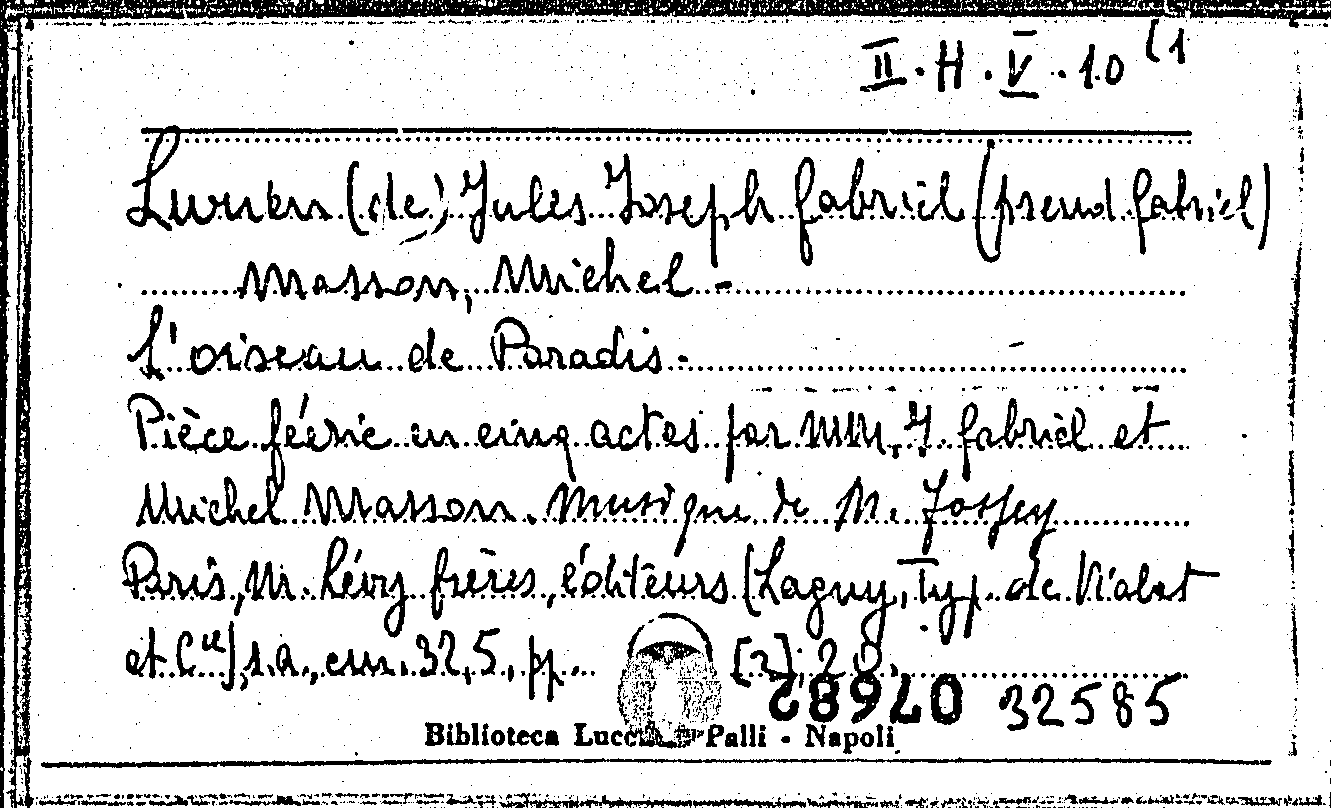 II. H. V. 10 (1
Lurieu (de) Jules Joseph Gabriel (pseud. Gabriel)
Masson, Michel -
L'oiseau de Paradis.
Pièce féerie en cinq actes par MM. J. Gabriel et
Michel Masson. Musique de M. Fossey
Paris, M. Lévy frères, éditeurs (Lagny, Typ. de Vialat
et Cie), s.a., cm. 32,5, pp. [2], 20.
07682 32585
Biblioteca Lucc Palli - Napoli